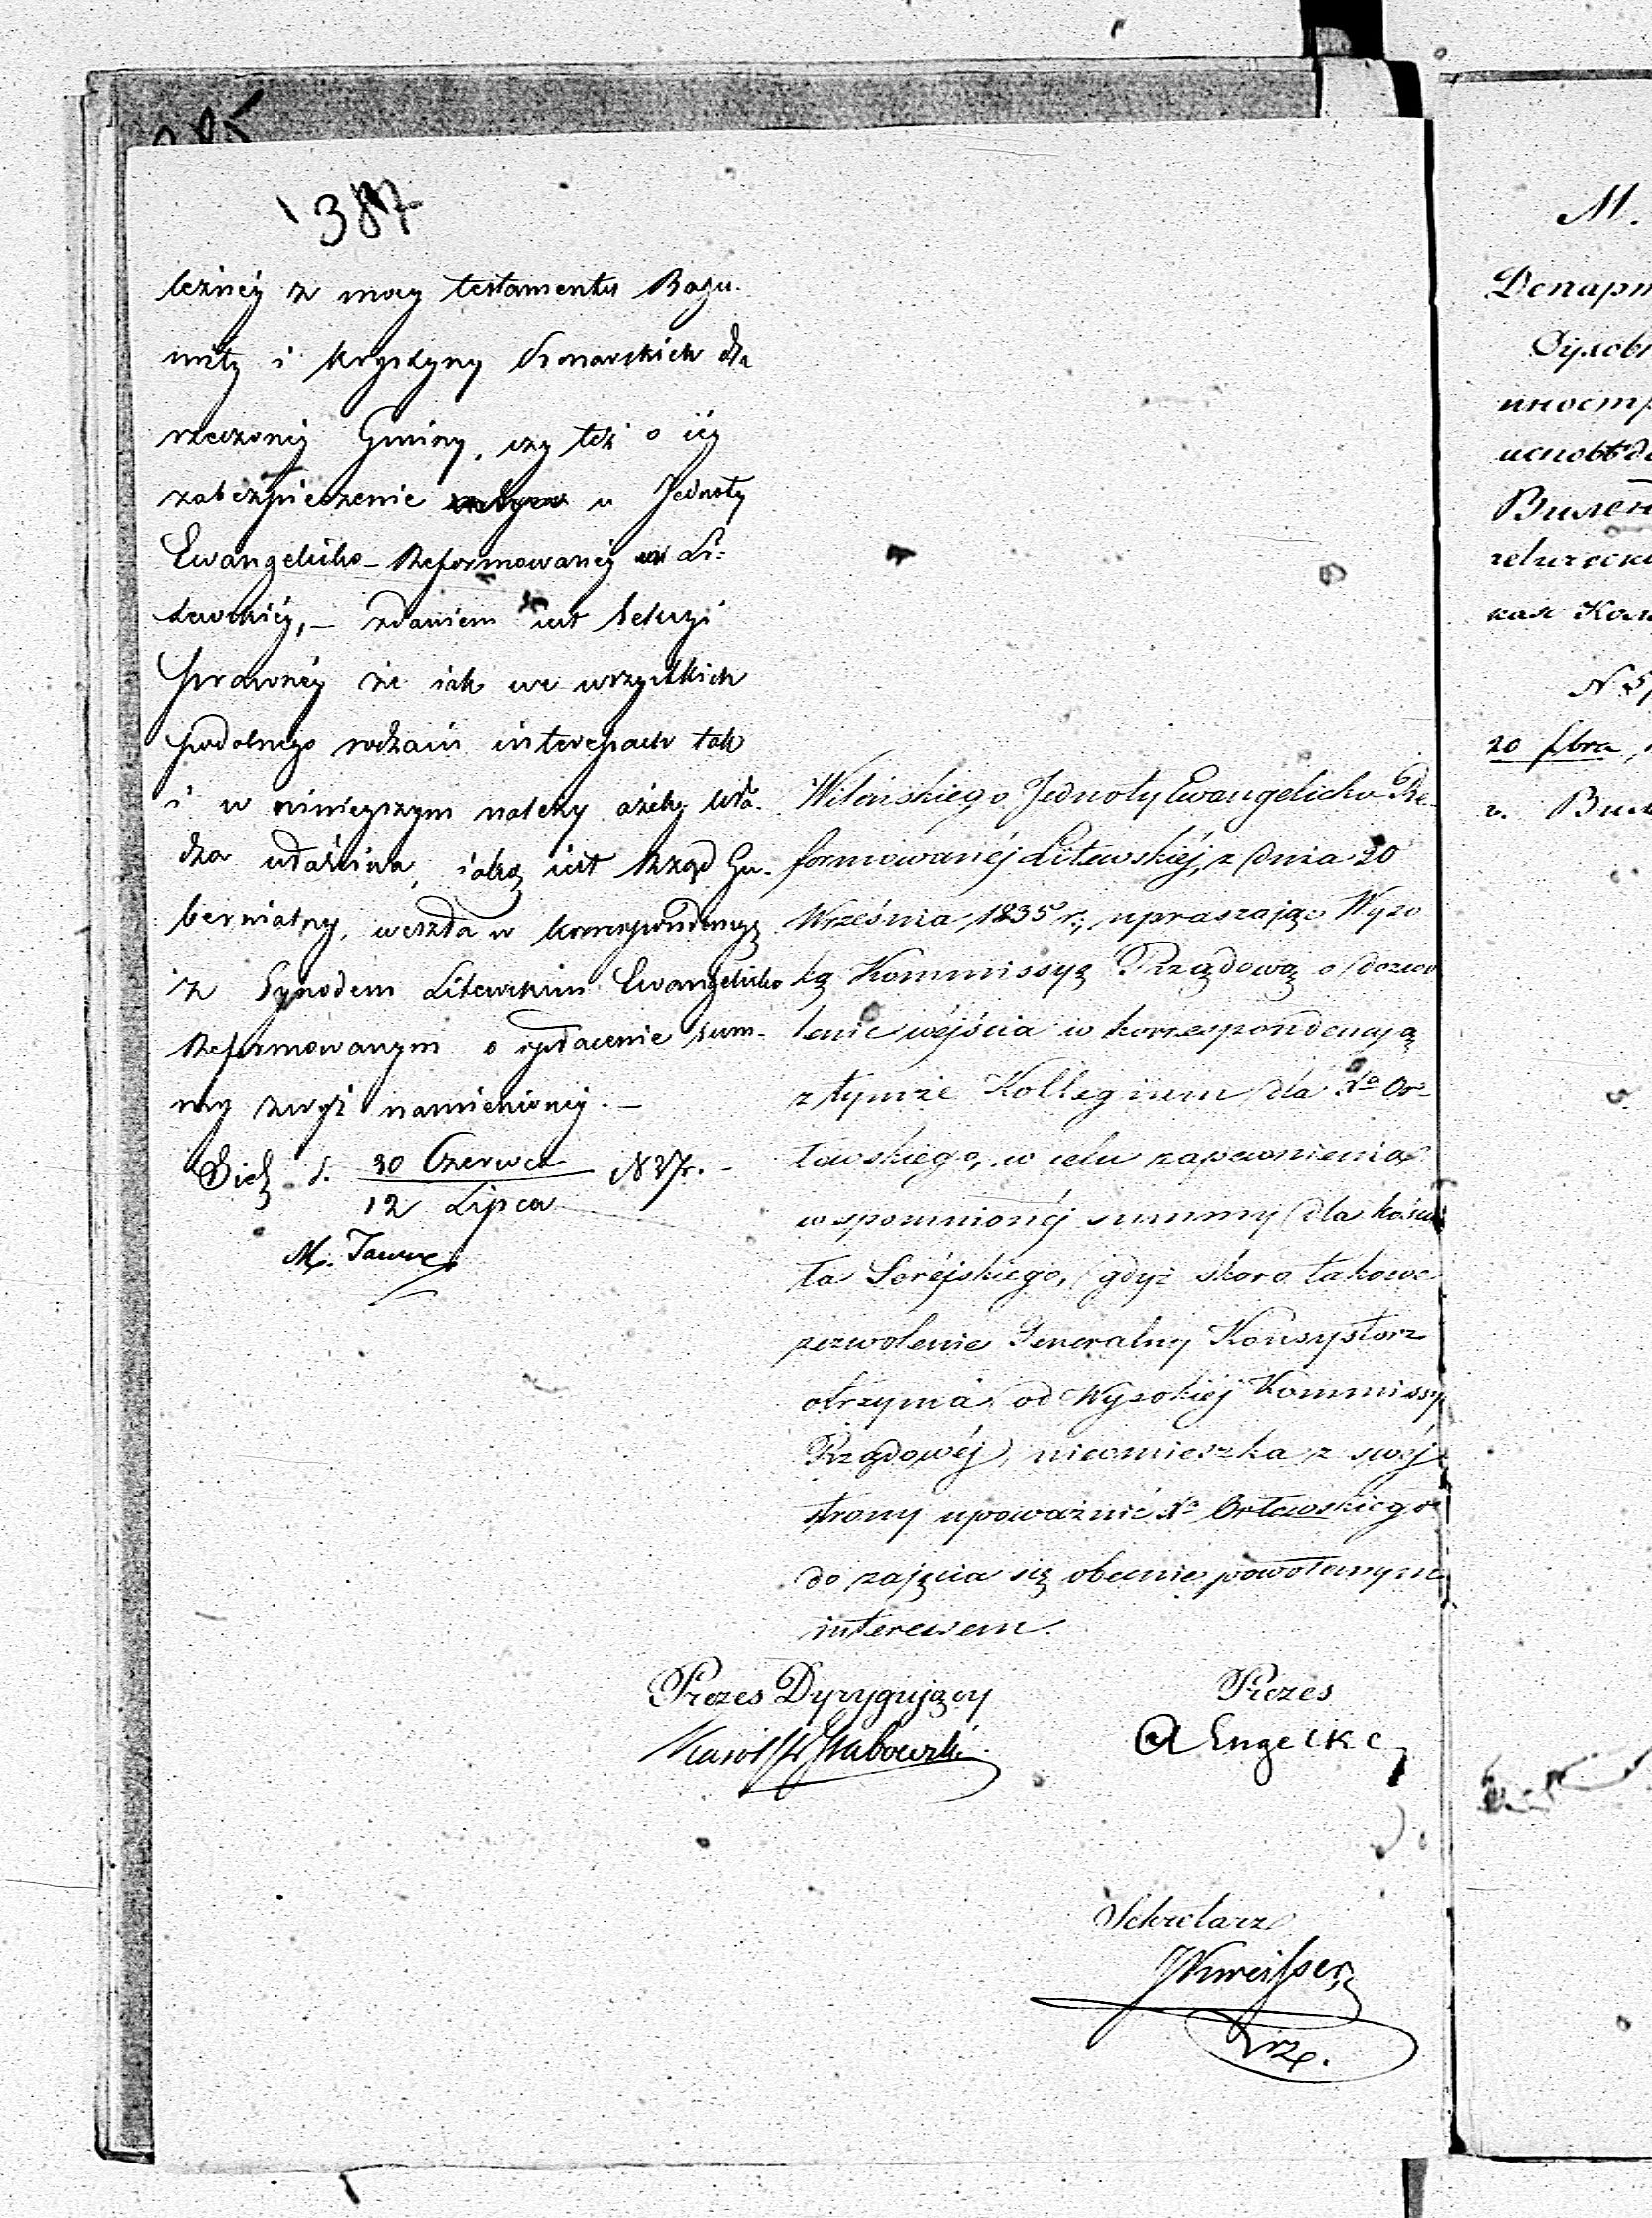 387
leżnéy z mocy testamentu Bogu-
miły i Krystyny Sionarskich dla
rzeczonéy Gminy, czy téż o iéy
zabezpieczenie u Jednoty
Ewangelicko-Reformowanéy Li-
tewskiéy, — zdaniem iest Sekcyi
Prawnéy że iak we wszystkich
podobnego rodzaiu interessach tak
i w ninieyszym należy ażeby Wła-
dza właściwa, iaką iest Rząd Gu-
bernialny, weszła w korrespondencyą
z Synodem Litewskim Ewangelicko
Reformowanym o spłacenie sum-
my zwyż namienionéy. —
d. 30 Czerwca / 12 Lipca 1837 r. —
Wileńskiego Jednoty Ewangelicko-Re-
formowanéj Litewskiéj, z dnia 20
Września 1835 r., upraszając Wyso
ką Kommissyą Rządową o dozwo
lenie wejścia w korrespondencyą
z tymże Kollegium dla Xa Or-
łowskiego, w celu zapewnienia
wspomnionéj summy dla kościo
ła Seréjskiego, gdyż skoro takowe
zezwolenie Generalny Konsystorz
otrzyma od Wysokiéj Kommissyi
Rządowéj, nieomieszka z swéj
strony upoważnić Xa Orłowskiego
do zajęcia się obecnie powołanym
interesem.
Prezes Dyrygujący
Prezes
Karol
A Engelke
Sekretarz
М.
Департ
Духовн
иностр
исповѣда
Вилен
гелическ
кая Кол
N 5
20 8bra
г. Вил